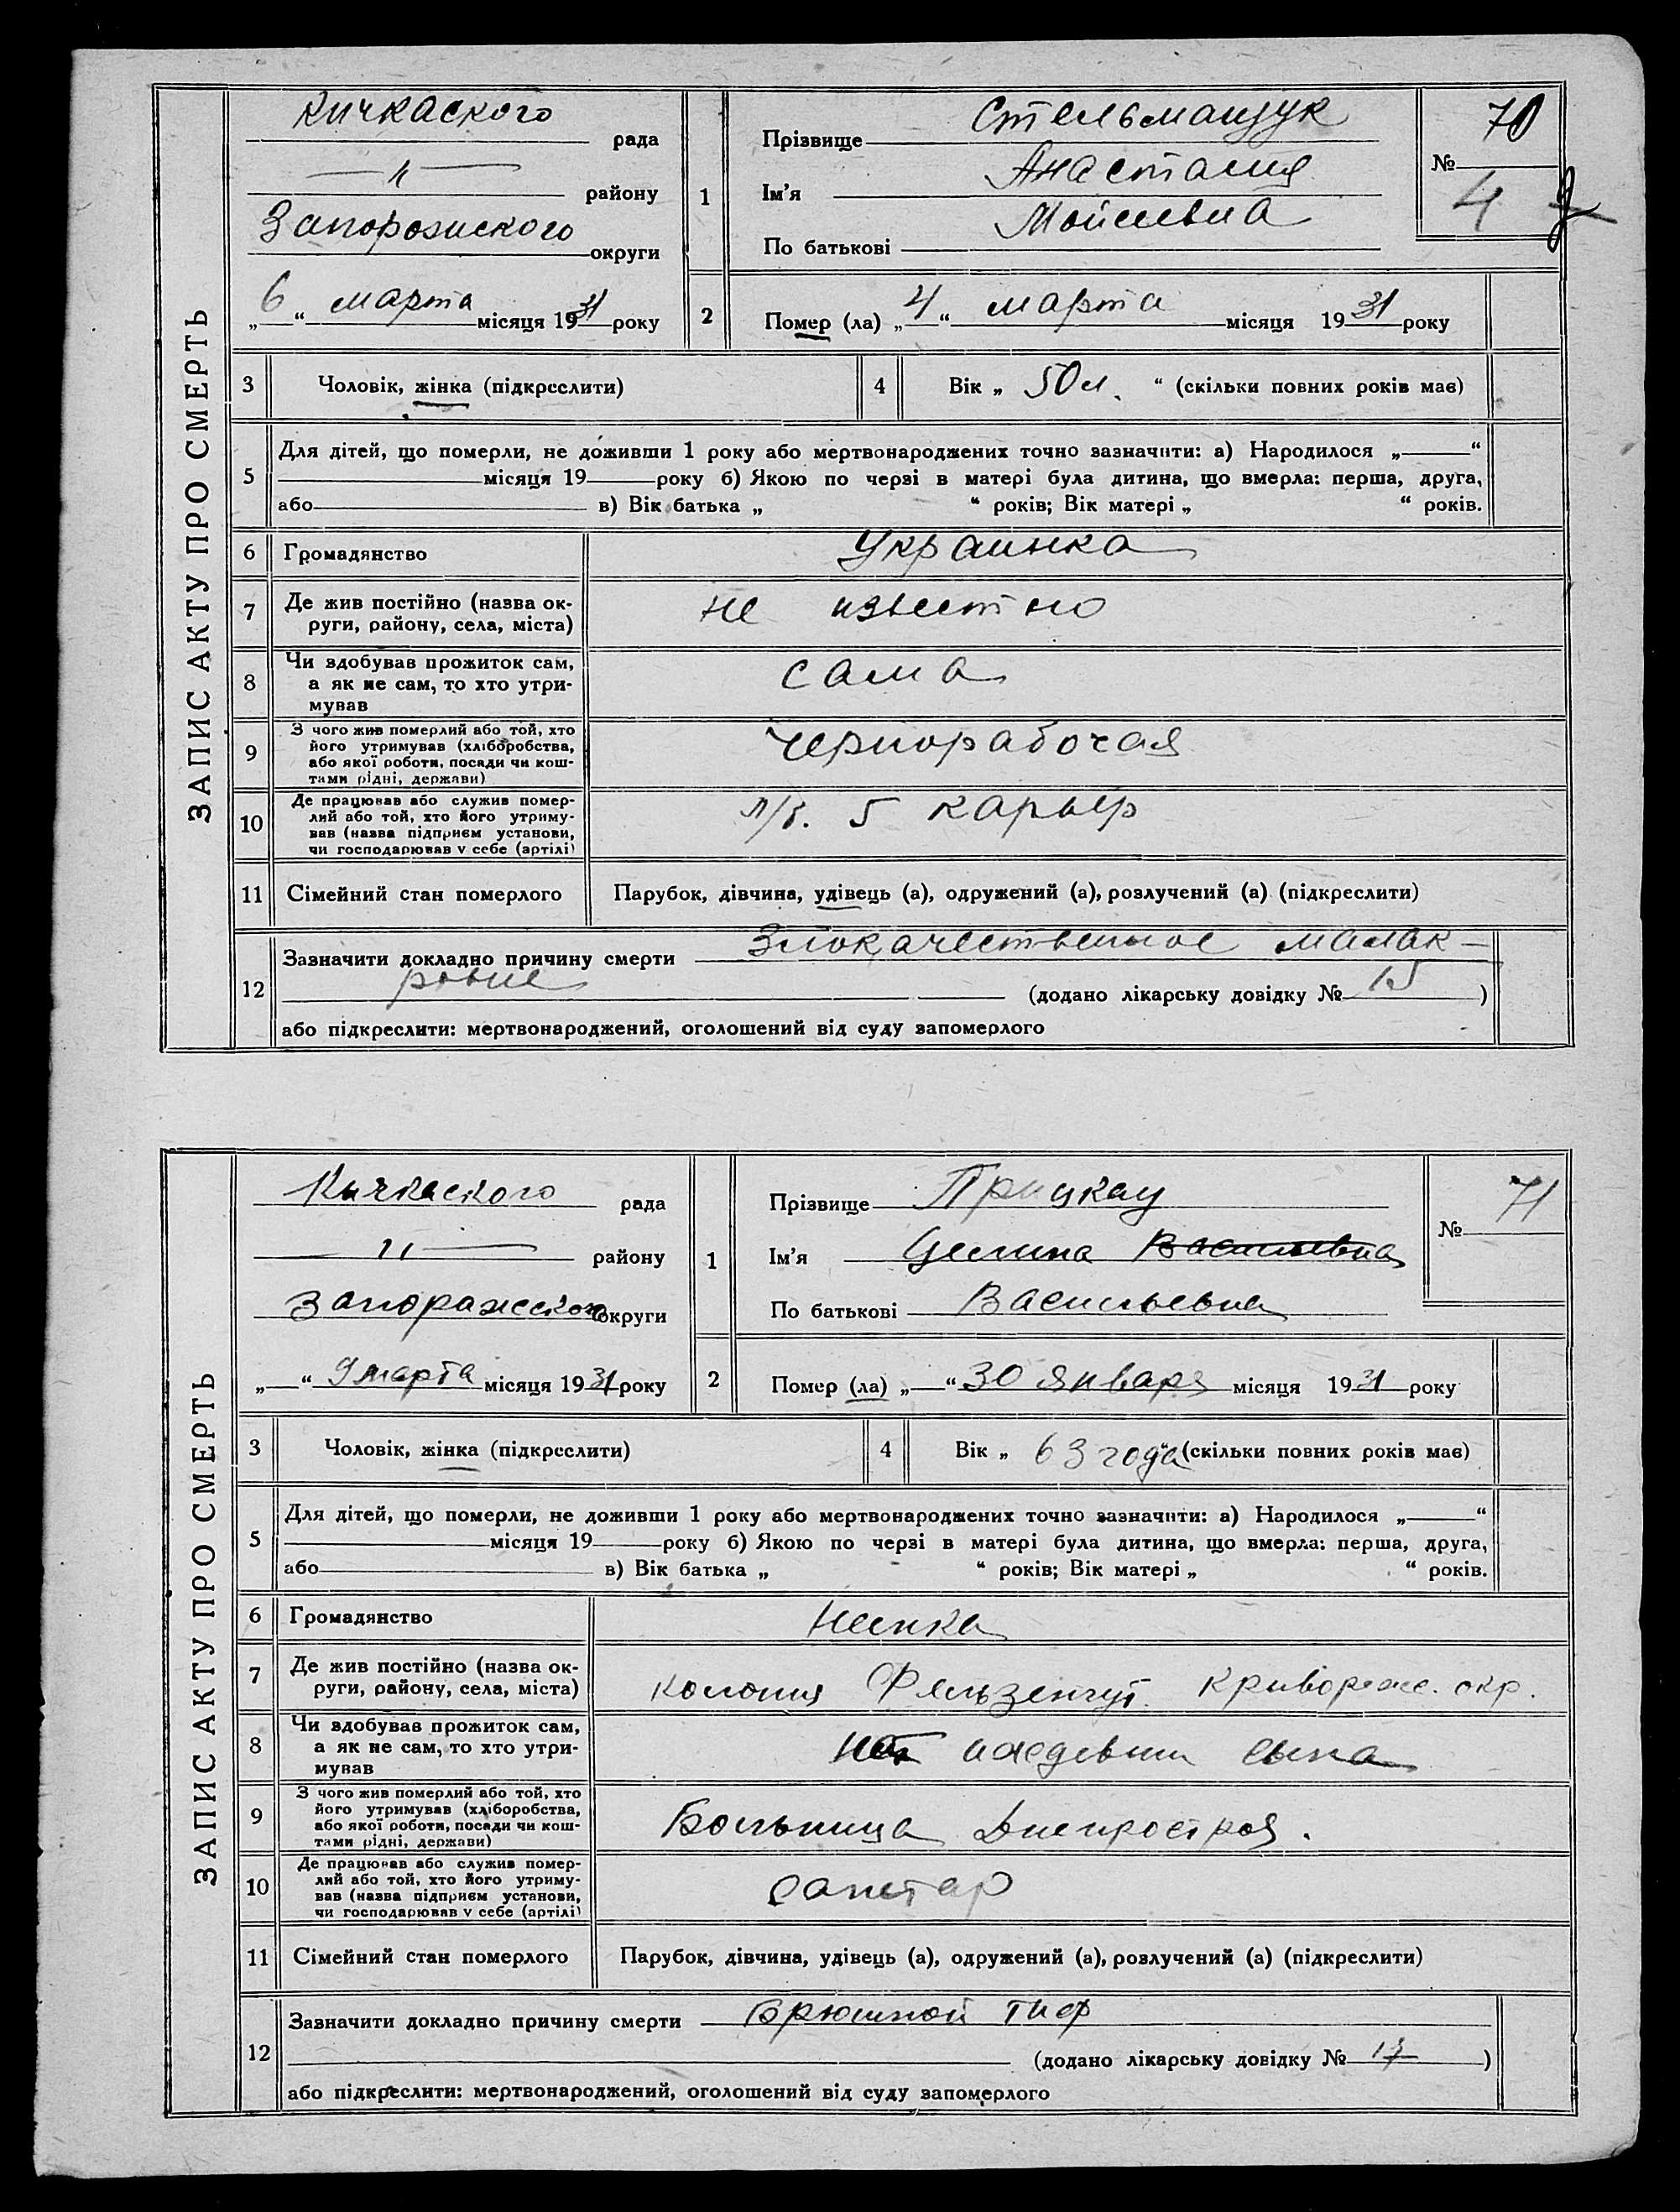 ЗАПИС АКТУ ПРО СМЕРТЬ
Кичкаского рада
—〃— району
Запорожского округи
„6“ марта місяця 1931 року
1
Прізвище Стельмащук
Ім'я Анастасия
По батькові Мойсеевна
№ 70
4
2
Помер (ла) „4“ марта місяця 1931 року
3 Чоловік, жінка (підкреслити)
4 Вік „50 л.“ (скільки повних років має)
5 Для дітей, що померли, не доживши 1 року або мертвонароджених точно зазначити: а) Народилося „——“
місяця 19 року б) Якою по черзі в матері була дитина, що вмерла: перша, друга,
або в) Вік батька „ “ років; Вік матері „ “ років.
6 Громадянство Украинка
7 Де жив постійно (назва ок-
руги, району, села, міста) не известно
8 Чи здобував прожиток сам,
а як не сам, то хто утри-
мував сама
9 З чого жив померлий або той, хто
його утримував (хліборобства,
або якої роботи, посади чи кош-
тами рідні, держави) Чернорабочая
10 Де працював або служив помер-
лий або той, хто його утриму-
вав (назва підприєм установи,
чи господарював у себе (артілі) 5 карьер
11 Сімейний стан померлого Парубок, дівчина, удівець (а), одружений (а), розлучений (а) (підкреслити)
12 Зазначити докладно причину смерти Злокачественное малок-
ровие (додано лікарську довідку № 15)
або підкреслити: мертвонароджений, оголошений від суду запомерлого
ЗАПИС АКТУ ПРО СМЕРТЬ
Кичкаского рада
—〃— району
Запоражского округи
„—“ 9 марта місяця 1931 року
1
Прізвище Прицкау
Ім'я Целина Васильевна
По батькові Васильевна
№ 71
2
Помер (ла) „—“ 30 января місяця 1931 року
3 Чоловік, жінка (підкреслити)
4 Вік „63 года“ (скільки повних років має)
5 Для дітей, що померли, не доживши 1 року або мертвонароджених точно зазначити: а) Народилося „——“
місяця 19 року б) Якою по черзі в матері була дитина, що вмерла: перша, друга,
або в) Вік батька „ “ років; Вік матері „ “ років.
6 Громадянство Немка
7 Де жив постійно (назва ок-
руги, району, села, міста) колония Криворож. окр.
8 Чи здобував прожиток сам,
а як не сам, то хто утри-
мував сына
9 З чого жив померлий або той, хто
його утримував (хліборобства,
або якої роботи, посади чи кош-
тами рідні, держави) Больница Днепростроя.
10 Де працював або служив помер-
лий або той, хто його утриму-
вав (назва підприєм установи,
чи господарював у себе (артілі) санетар
11 Сімейний стан померлого Парубок, дівчина, удівець (а), одружений (а), розлучений (а) (підкреслити)
12 Зазначити докладно причину смерти Брюшной тиф
(додано лікарську довідку № 17)
або підкреслити: мертвонароджений, оголошений від суду запомерлого